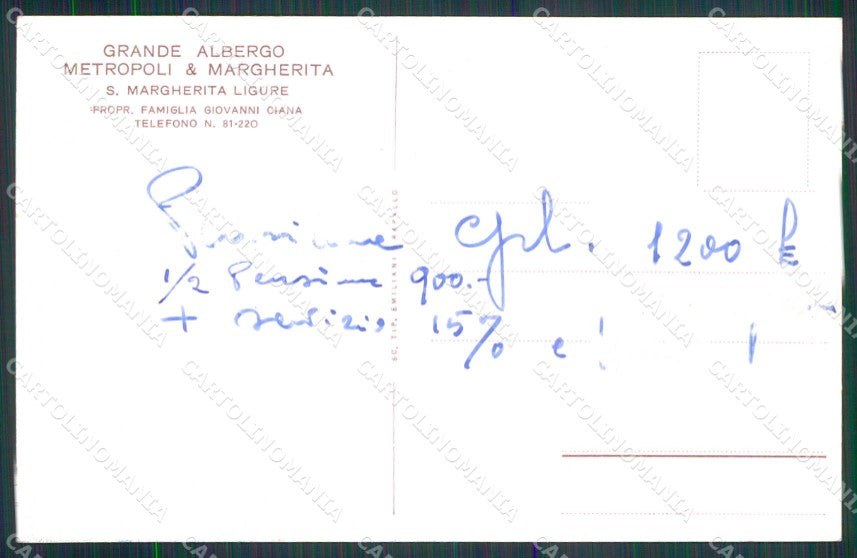 GRANDE ALBERGO
METROPOLI & MARGHERITA
S. MARGHERITA LIGURE
PROPR. FAMIGLIA GIOVANNI CIANA
TELEFONO N. 81-220
Pensione 1200 £
1/2 Pensione 900.-
+ servizio 15% e
60, TIP. EMILIANI RAPALLO
CARTOLINOMANIA